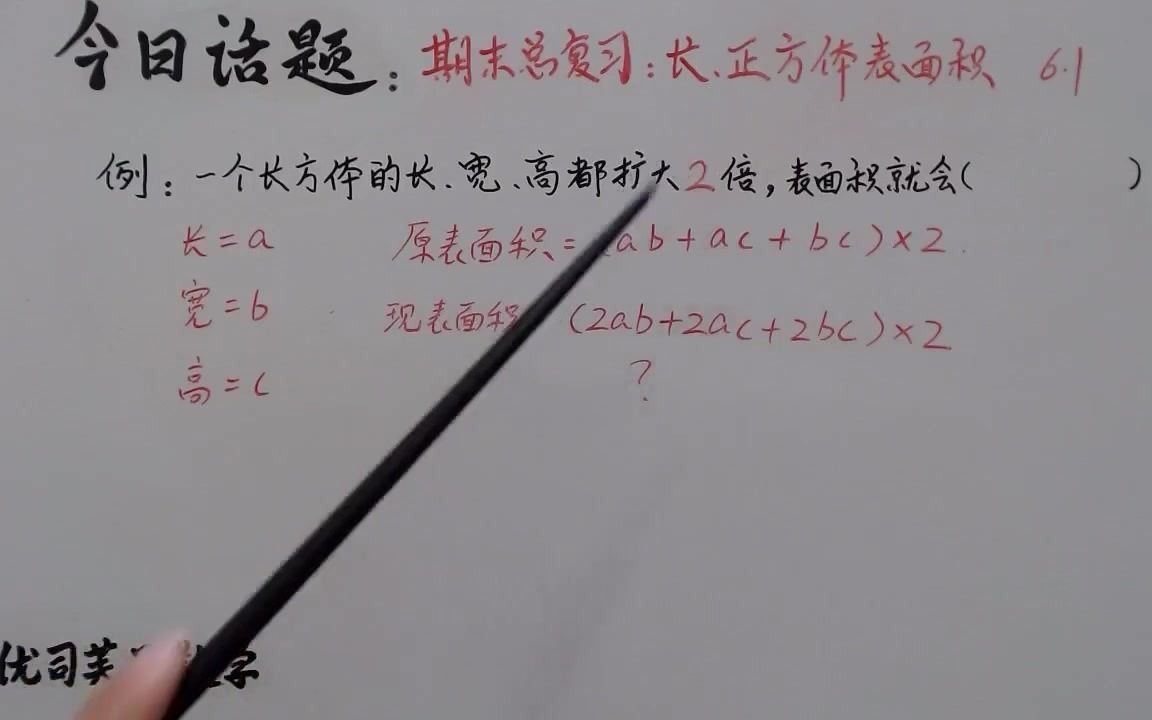 今日话题：期末总复习：长、正方体表面积 6.1
例：一个长方体的长、宽、高都扩大2倍，表面积就会（ ）
长=a 原表面积=ab+ac+bc）×2
宽=b 现表面积（2ab+2ac+2bc）×2
高=c ?
优司芙